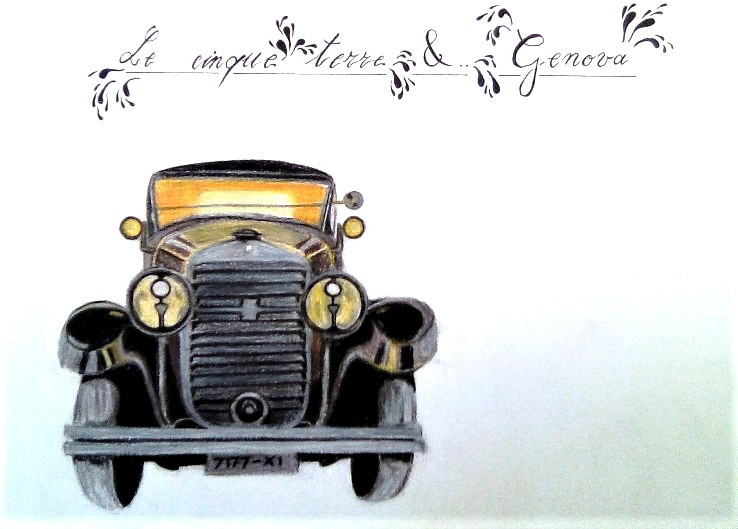 Le cinque terre & .. Genova
7177-X1